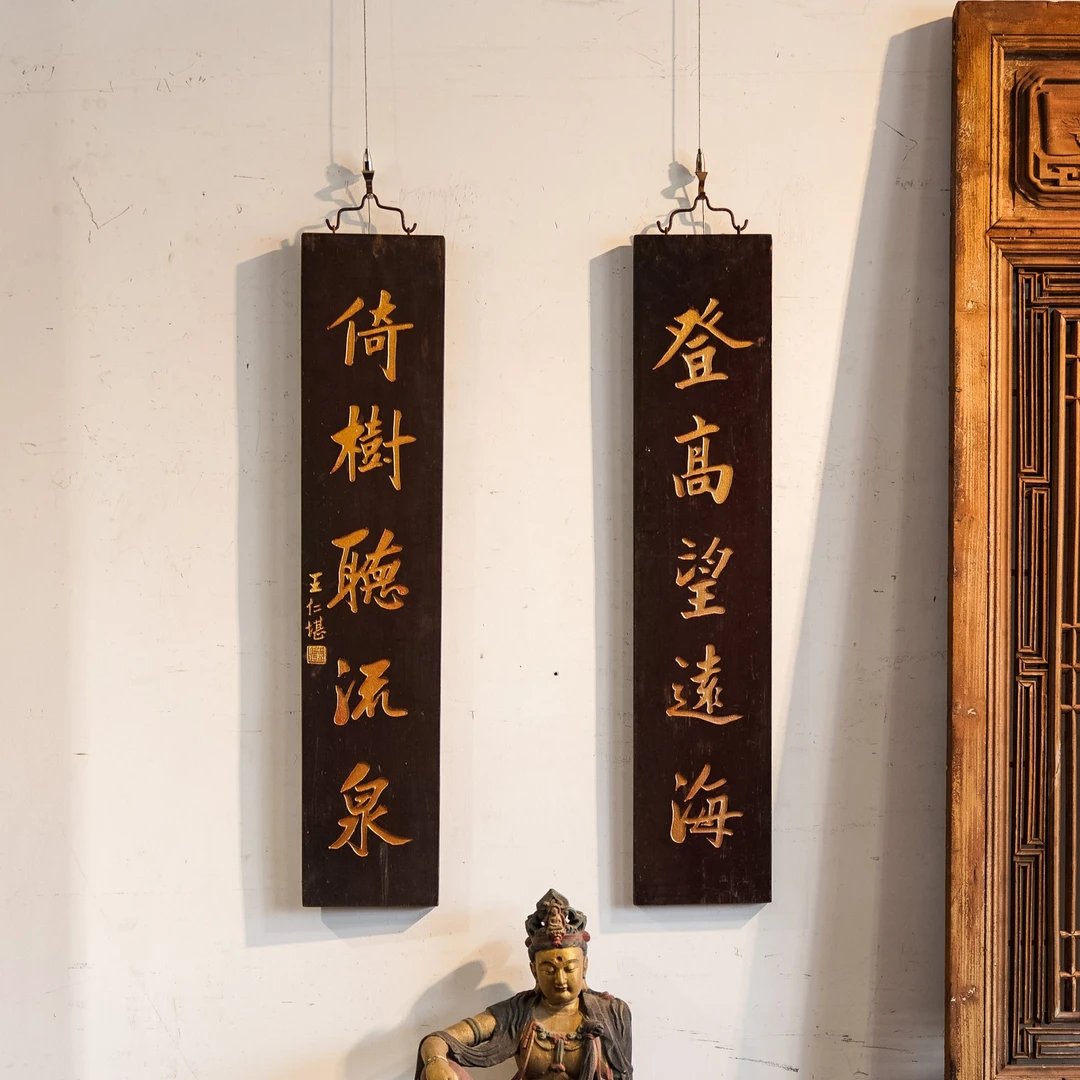 登高望遠海
倚樹聽流泉
王仁堪